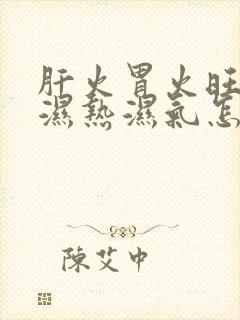 肝火胃火旺
濕熱濕氣怎
陳艾中